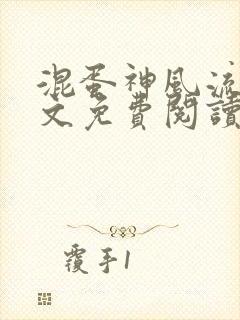 混蛋神風流
文免費閱讀
覆手1